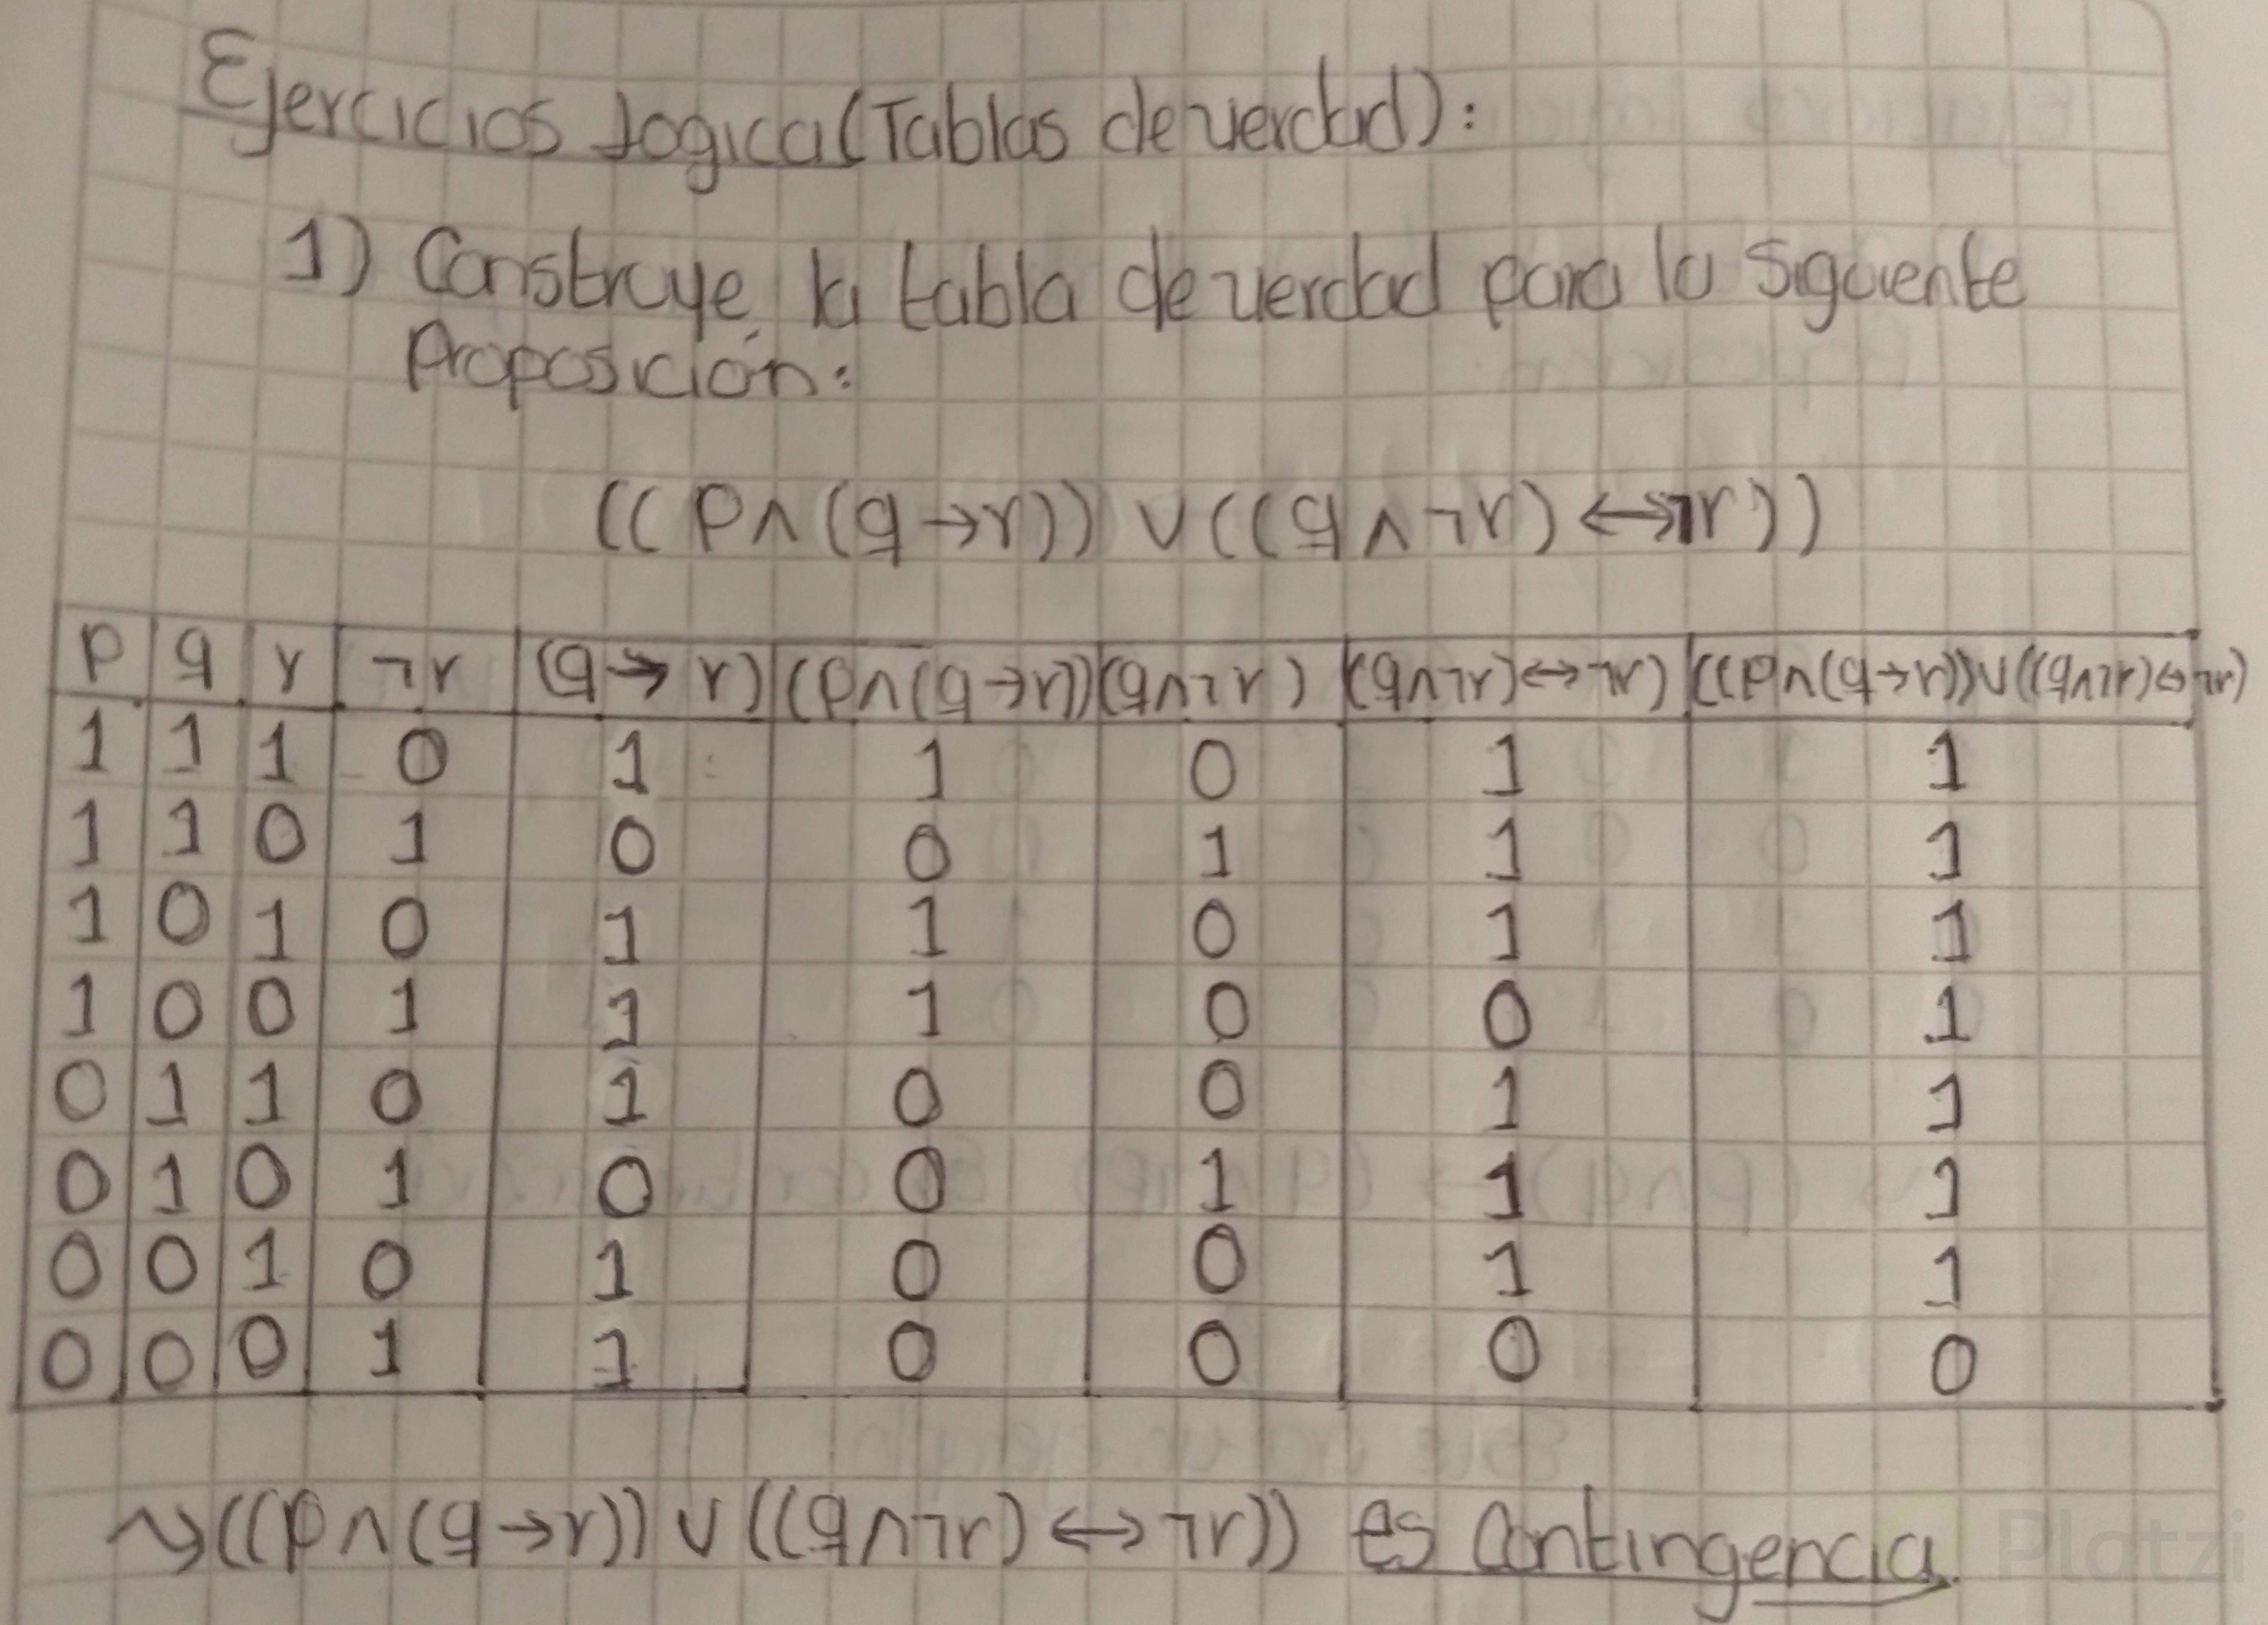 Ejercicios Logica (Tablas de verdad):
1) Construye la tabla de verdad para la siguiente
Proposición:
((p∧(q→r))∨((q∧¬r)↔¬r))
p q r ¬r (q→r) (p∧(q→r)) (q∧¬r) (q∧¬r)↔¬r) ((p∧(q→r))∨((q∧¬r)↔¬r)
1 1 1 0 1 1 0 1 1
1 1 0 1 0 0 1 1 1
1 0 1 0 1 1 0 1 1
1 0 0 1 1 1 0 0 1
0 1 1 0 1 0 0 1 1
0 1 0 1 0 0 1 1 1
0 0 1 0 1 0 0 1 1
0 0 0 1 1 0 0 0 0
↝((p∧(q→r))∨((q∧¬r)↔¬r)) es Contingencia
Platzi